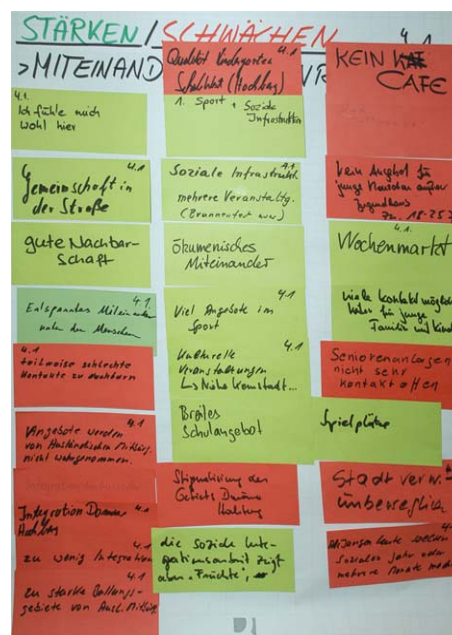 STÄRKEN / SCHWÄCHEN 4.1
> MITEINAND
4.1.
Ich fühle mich
wohl hier
4.1
Gemeinschaft in
der Straße
gute Nachbar-
schaft
4.1.
Entspanntes Miteinander
unter den Menschen
4.1
teilweise schlechte
Kontakte zu Nachbarn
4.1
Angebote werden
von Ausländischen Mitbürg.
nicht wahrgenommen.
Integration
4.1
zu wenig Integration
4.1
zu starke Ballungs-
gebiete von Ausl. Mitbürg.
4.1
Qualität Kindergarten
1. Sport + Soziale
Infrastruktur
4.1
Soziale Infrastrukt.
mehrere Veranstaltg.
Ökumenisches
Miteinander
4.1
Viel Angebote im
Sport
4.1
Kulturelle
Veranstaltungen
Breites
Schulangebot
Stigmatisierung des
Gebiets
die soziale Inte-
grationsarbeit zeigt
"Früchte",
KEIN
CAFE
kein Angebot für
junge Menschen außer
Jugendhaus
4.1.
Wochenmarkt
viele Kontaktmöglich
für junge
Familien mit Kind
Seniorenanlagen
nicht sehr
kontaktoffen
Spielplätze
Stadt verw.
unbeweglich